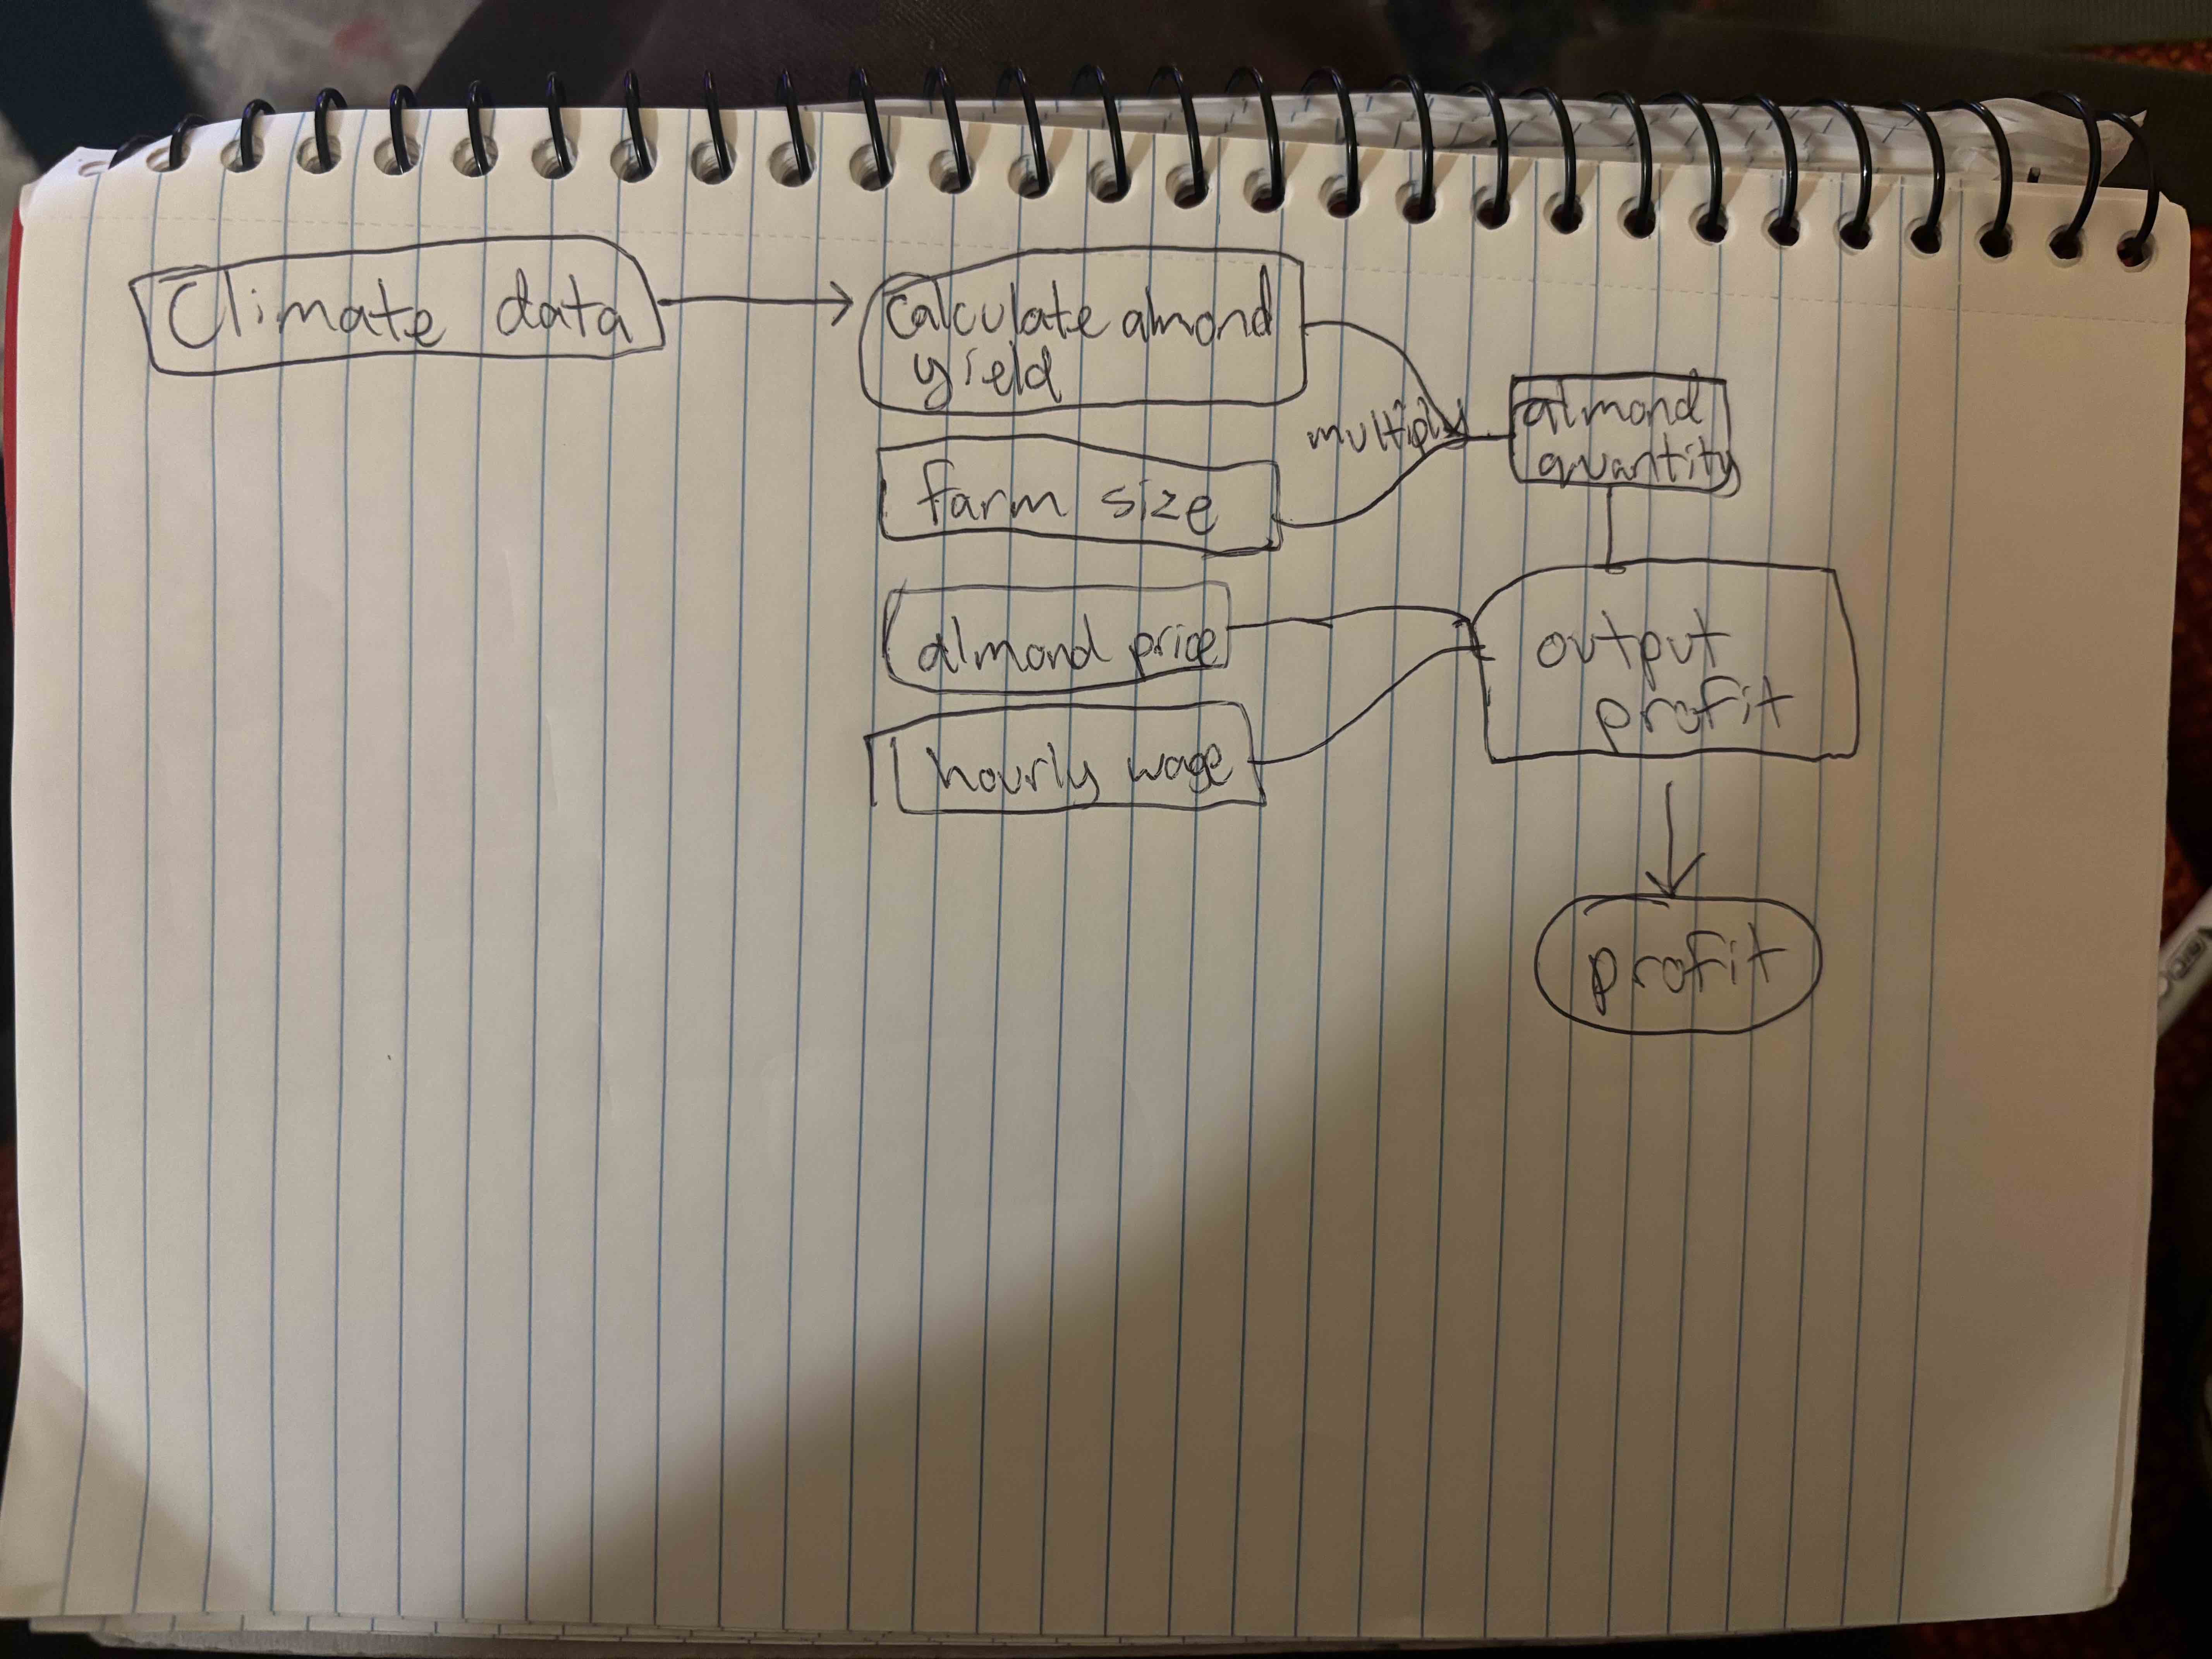 Climate data
calculate almond
yield
multiply
almond
quantity
farm size
almond price
output
profit
hourly wage
profit